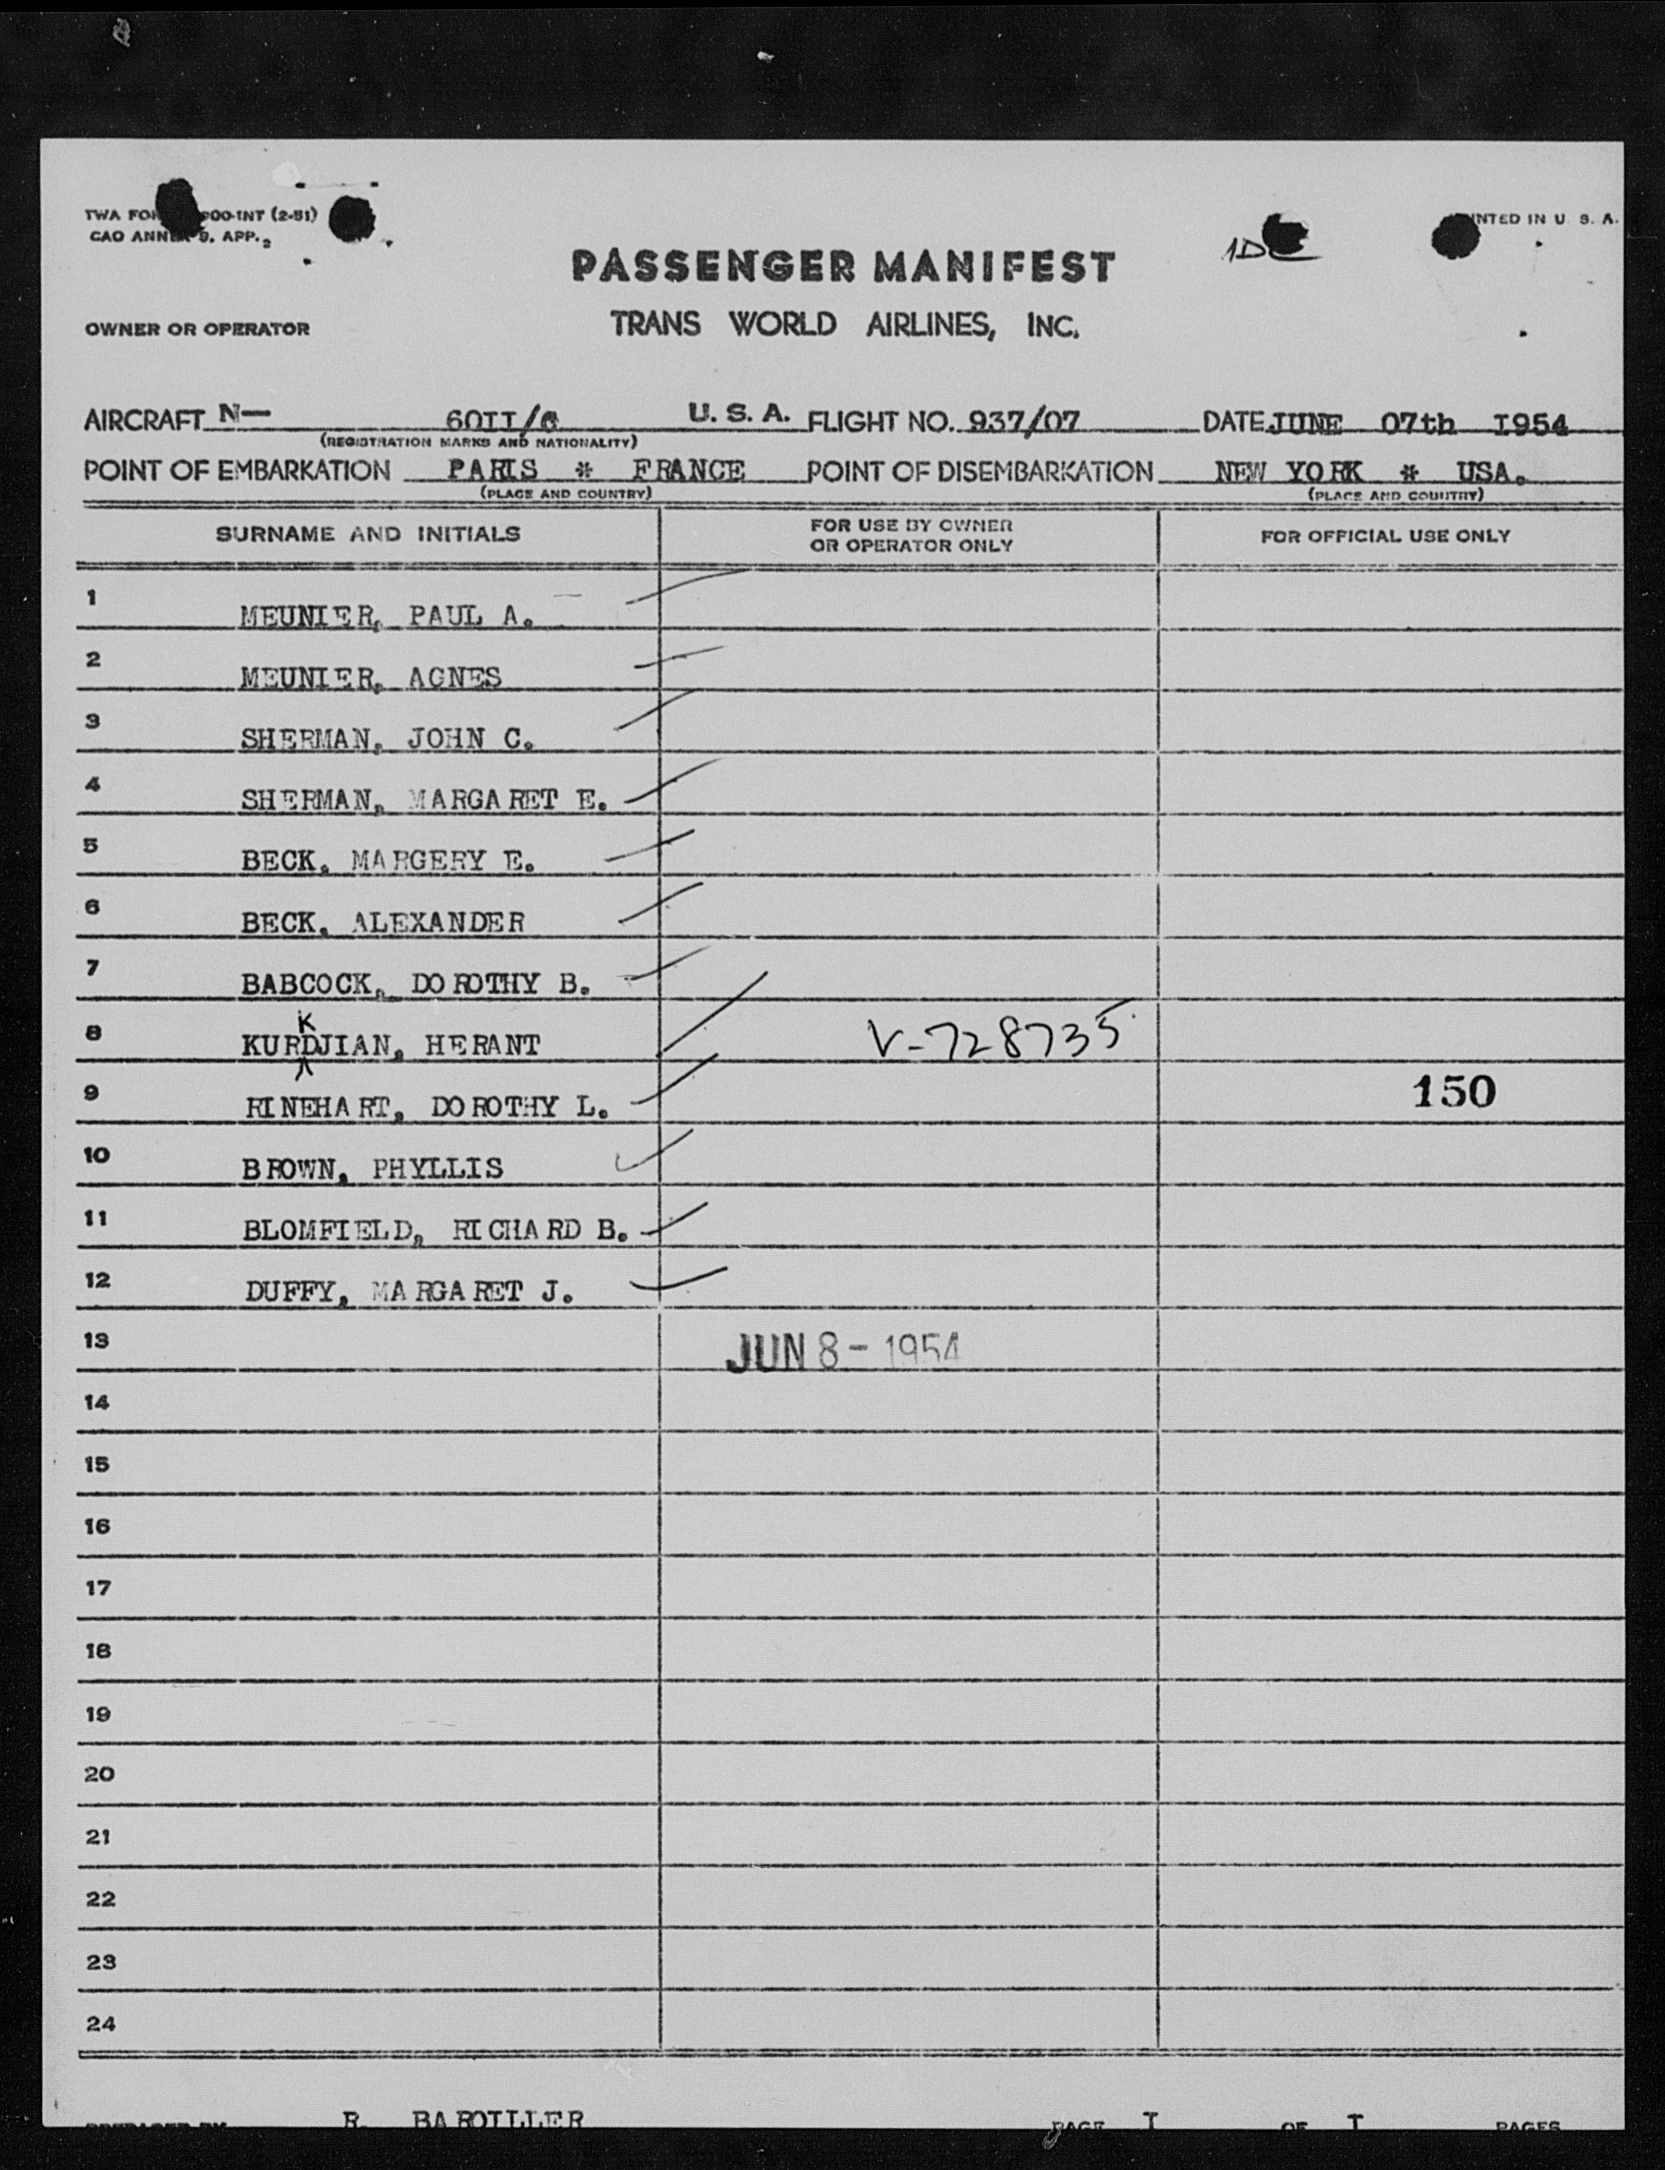 TWA FOR 00-INT (2-51)
CAO ANNEX 9, APP. 2
INTED IN U. S. A.
1D
PASSENGER MANIFEST
OWNER OR OPERATOR TRANS WORLD AIRLINES, INC.
AIRCRAFT N— 60II/C U. S. A. FLIGHT NO. 937/07 DATE JUNE 07th I954
(REGISTRATION MARKS AND NATIONALITY)
POINT OF EMBARKATION PARIS * FRANCE POINT OF DISEMBARKATION NEW YORK * USA.
(PLACE AND COUNTRY) (PLACE AND COUNTRY)
SURNAME AND INITIALS FOR USE BY OWNER OR OPERATOR ONLY FOR OFFICIAL USE ONLY
1 MEUNIER, PAUL A.
2 MEUNIER, AGNES
3 SHERMAN, JOHN C.
4 SHERMAN, MARGARET E.
5 BECK, MARGERY E.
6 BECK, ALEXANDER
7 BABCOCK, DOROTHY B.
K
8 KURDJIAN, HERANT V-728735
9 RINEHART, DOROTHY L. 150
10 BROWN, PHYLLIS
11 BLOMFIELD, RICHARD B.
12 DUFFY, MARGARET J.
13 JUN 8 - 1954
14
15
16
17
18
19
20
21
22
23
24
PREPARED BY R. BAROILLER PAGE I OF I PAGES